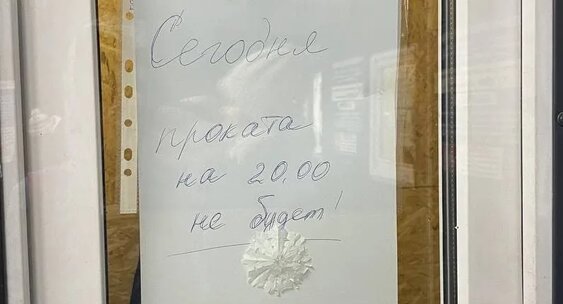 Сегодня
проката
на 20.00
не будет!